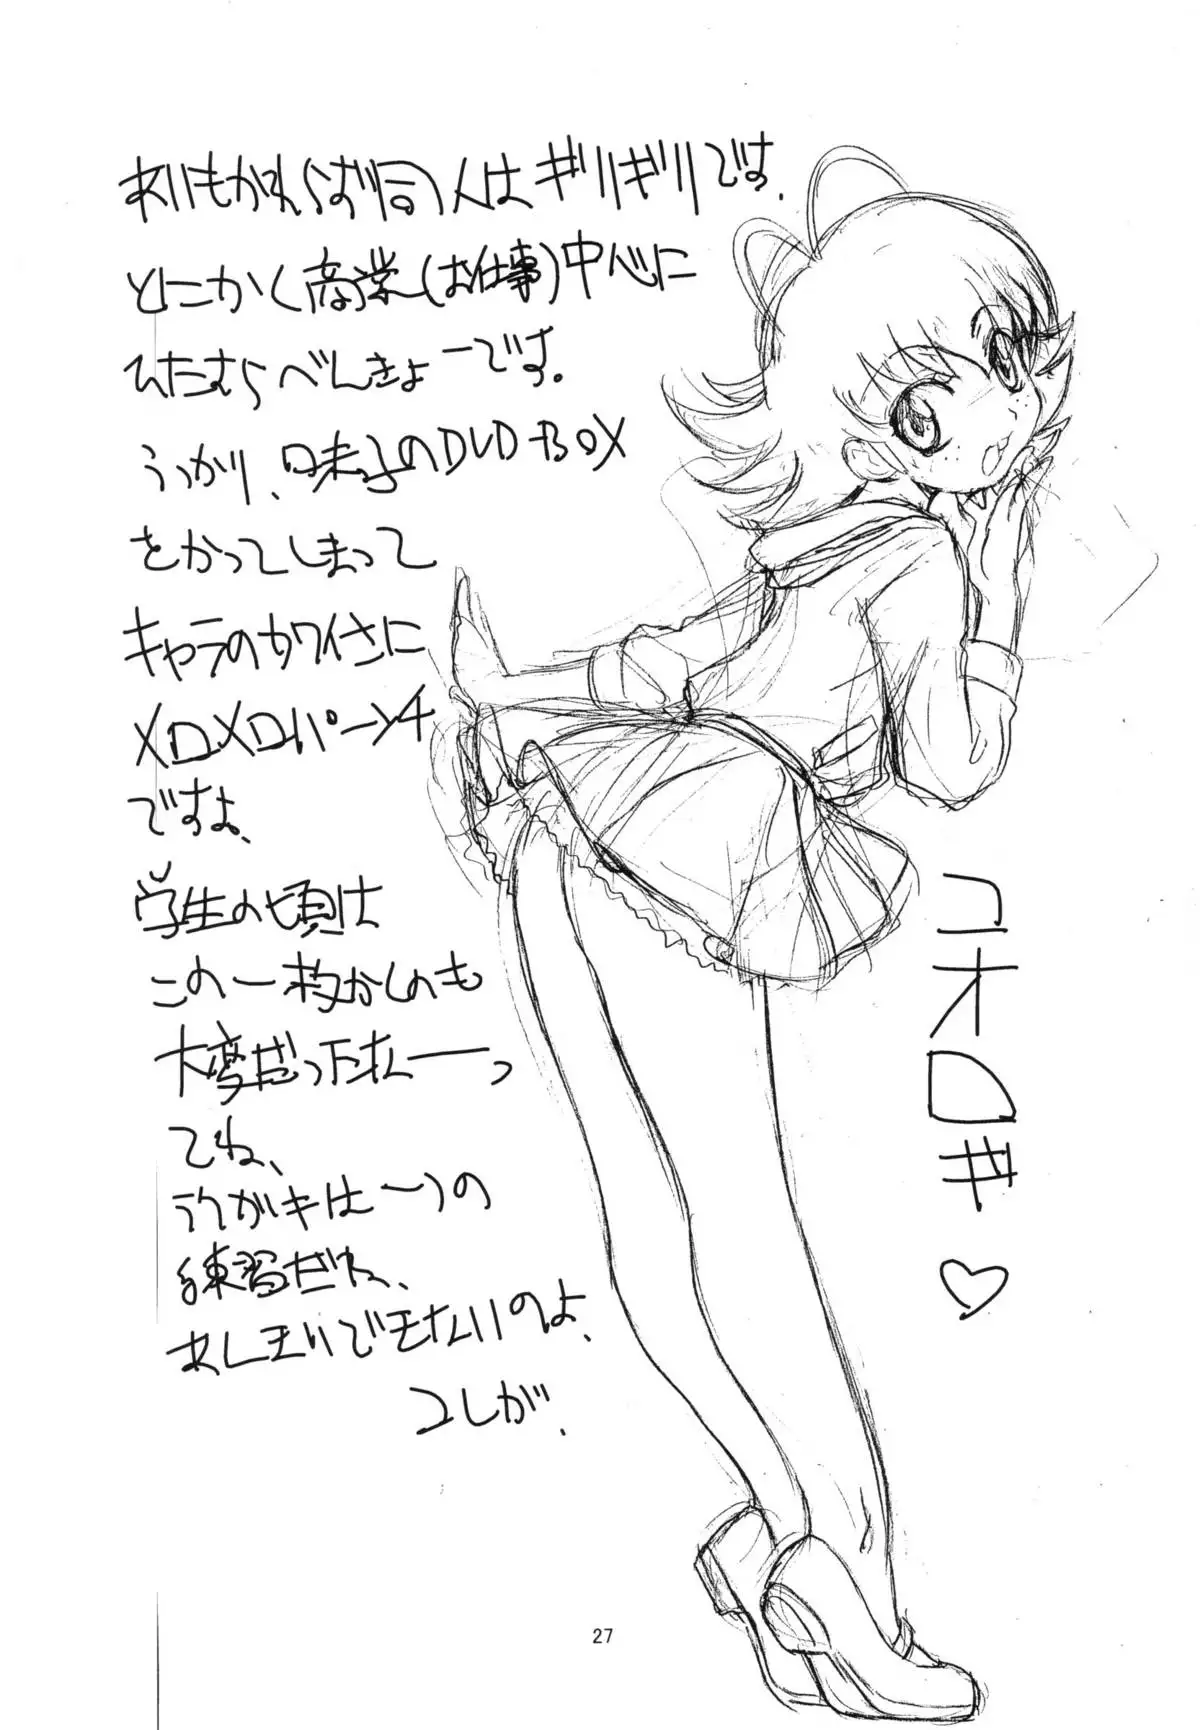 あいもかわらず同人はギリギリです、
とにかく商業(お仕事)中心に
ひたすらべんきょーです。
うっかり、味子のDVD-BOX
をかってしまって
キャラのカワイさに
メロメロパーンチ
ですよ、
学生の頃は
この一枚かくのも
大変だったんーっ
てね、
ラクガキはーつの
練習だね、
あしまりできないのよ、
コレが、
コオロギ ♡
27